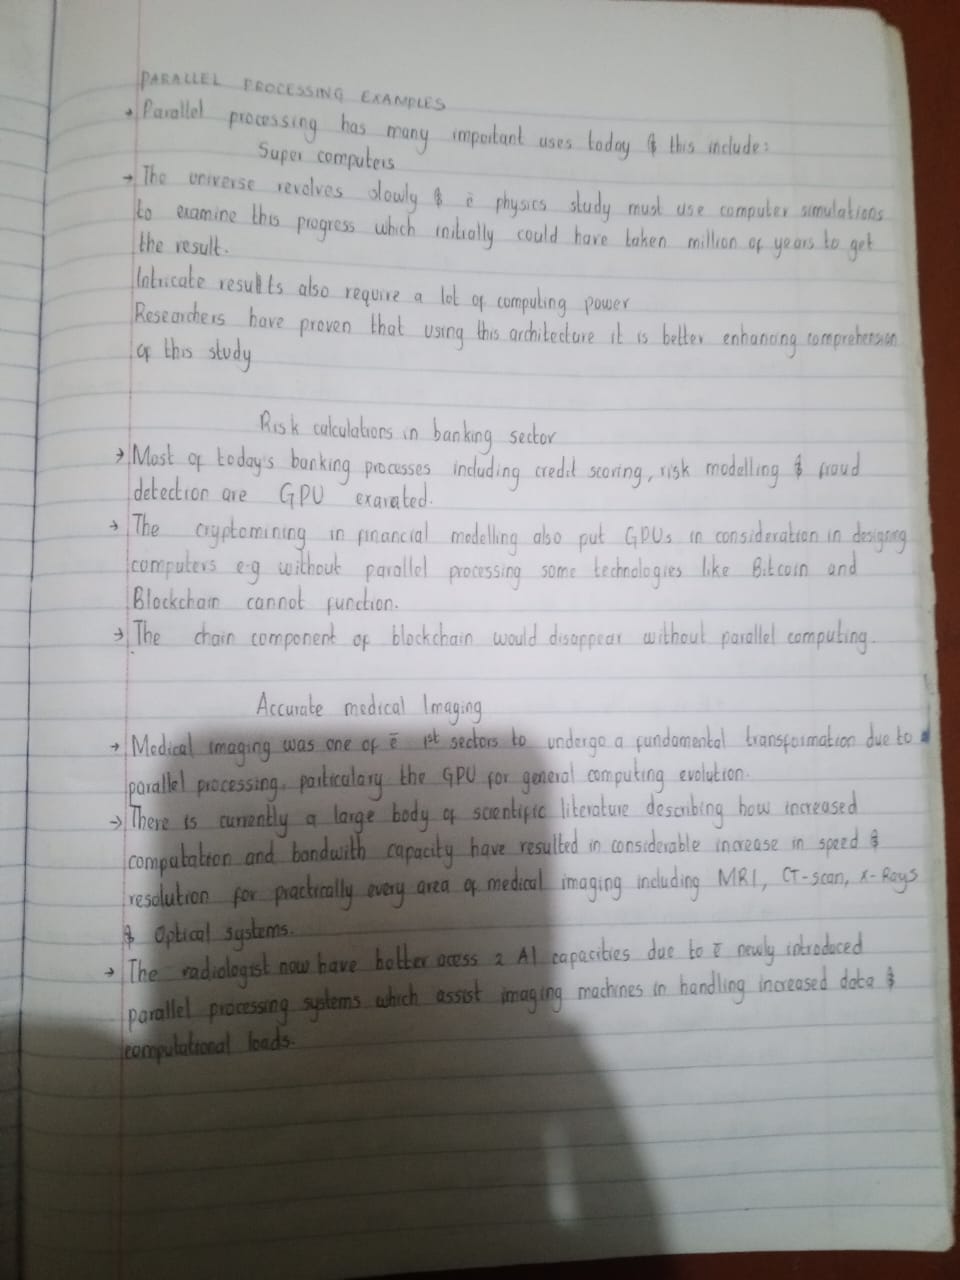 PARALLEL PROCESSING EXAMPLES
→ Parallel processing has many important uses today & this include:
Super computers
→ The universe revolves slowly & ē physics study must use computer simulations
to examine this progress which initially could have taken million of years to get
the result.
Intricate results also require a lot of computing power
Researchers have proven that using this architecture it is better enhancing comprehension
of this study
Risk calculations in banking sector
→ Most of today's banking processes including credit scoring, risk modelling & fraud
detection are GPU exarated.
→ The cryptomining in financial modelling also put GPUs in consideration in designing
computers e-g without parallel processing some technologies like Bitcoin and
Blockchain cannot function.
→ The chain component of blockchain would disappear without parallel computing.
Accurate medical Imaging
→ Medical imaging was one of ē 1st sectors to undergo a fundamental transformation due to
parallel processing, particulary the GPU for general computing evolution.
→ There is currently a large body of scientific literature describing how increased
computation and bandwith capacity have resulted in considerable increase in speed &
resolution for practically every area of medical imaging including MRI, CT-scan, X-Rays
& Optical systems.
→ The radiologist now have better acess 2 AI capacities due to ē newly introduced
parallel processing systems which assist imaging machines in handling increased data &
computational loads.